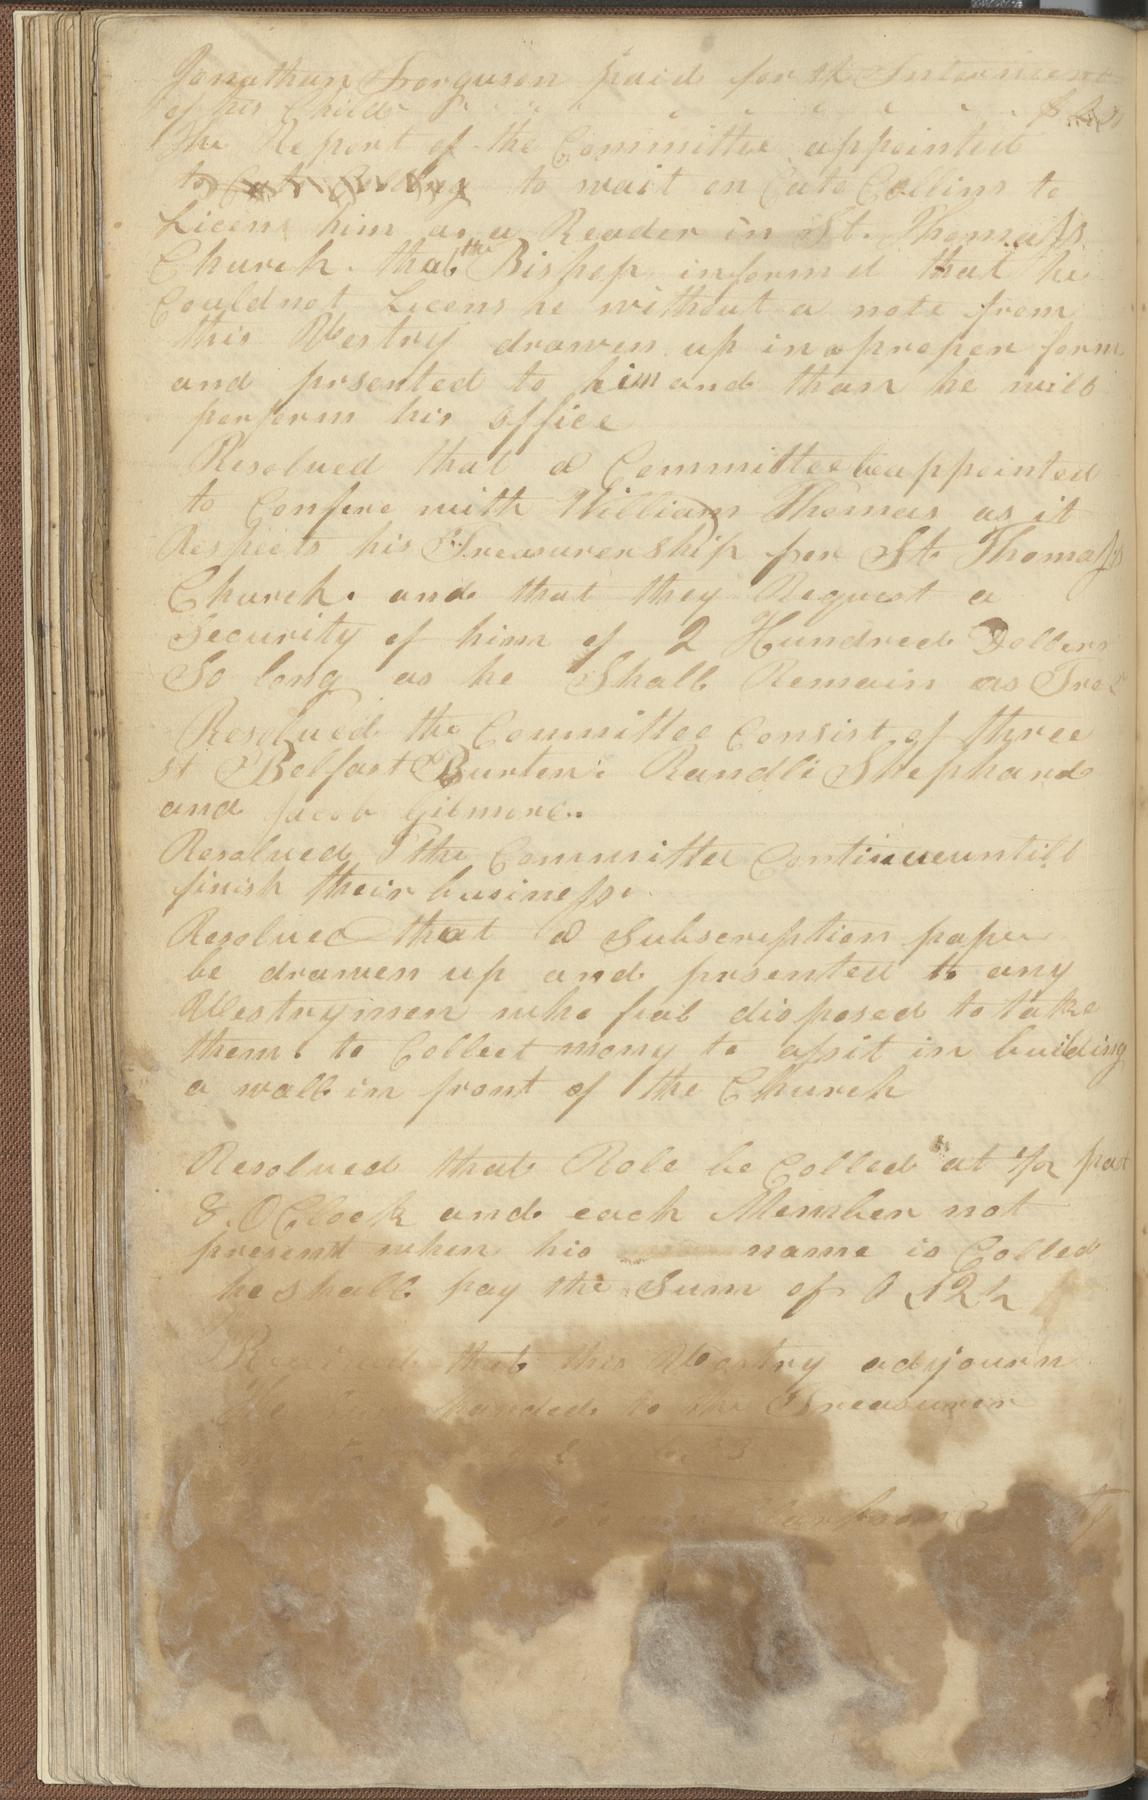 Jonathan Forguson paid for the Internment
of his Child
The Report of the Committee appointed
to wait on Cato Collins to
Licens him as a Reader in St. Thomass
Church. that the Bishop informd that he
Could not Licens he without a note from
this Vestry drawen up in a proper form
and prsented to him and than he will
perform his office
Resolved that a Committee be appointed
to Confere with William Thomas as it
Respects his Treasurership for St Thomass
Church. and that they Request a
Security of him of 2 Hundred Dollers
So long as he Shall Remain as Tre
Resolved the Committee Consist of three
st Belfast Burten: Randli Shephard
and Jacob Gibmore..
Resolved the Committee Continue untill
finish their business.
Resolved that a Subscription paper
be drawen up and prsented to any
Vestrymen who feal disposed to take
them to Collect mony to assit in building
a wall in front of the Church
Resolved that Role be Colled at 1/2 past
8. O Clock and each Member not
present when his name is Colled
he shall pay the Sum of 12½
that this Vestry adjourn
handed to the Treasurer